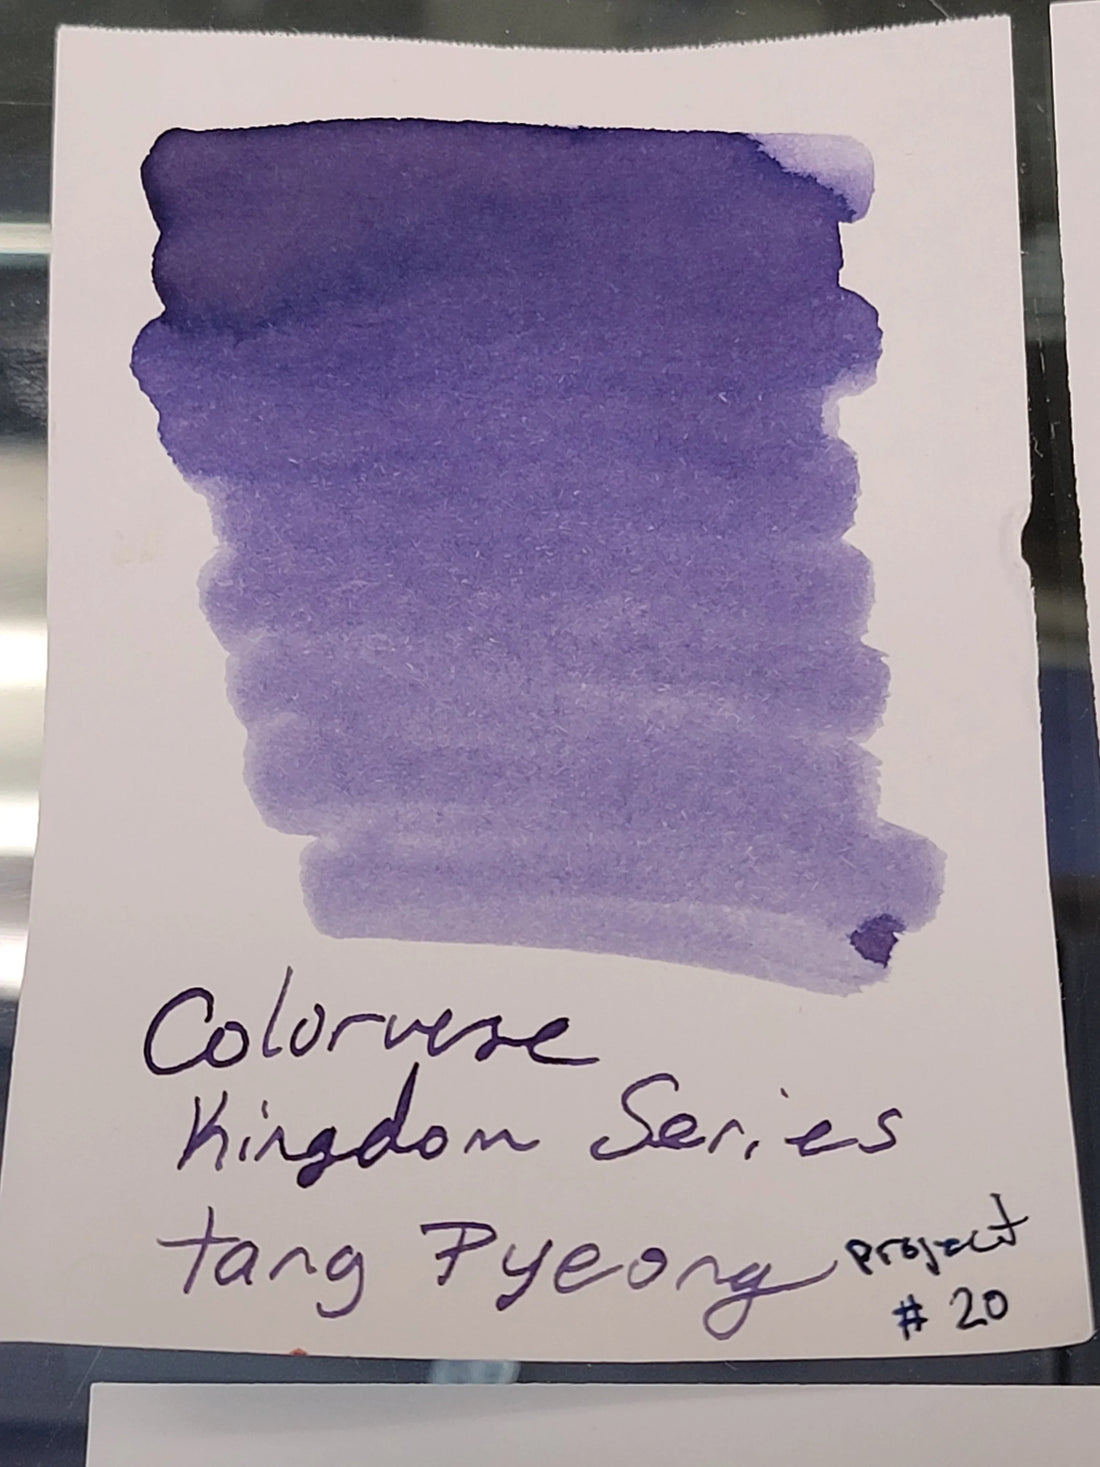 Colorverse
Kingdom Series
tang Pyeong
project
# 20